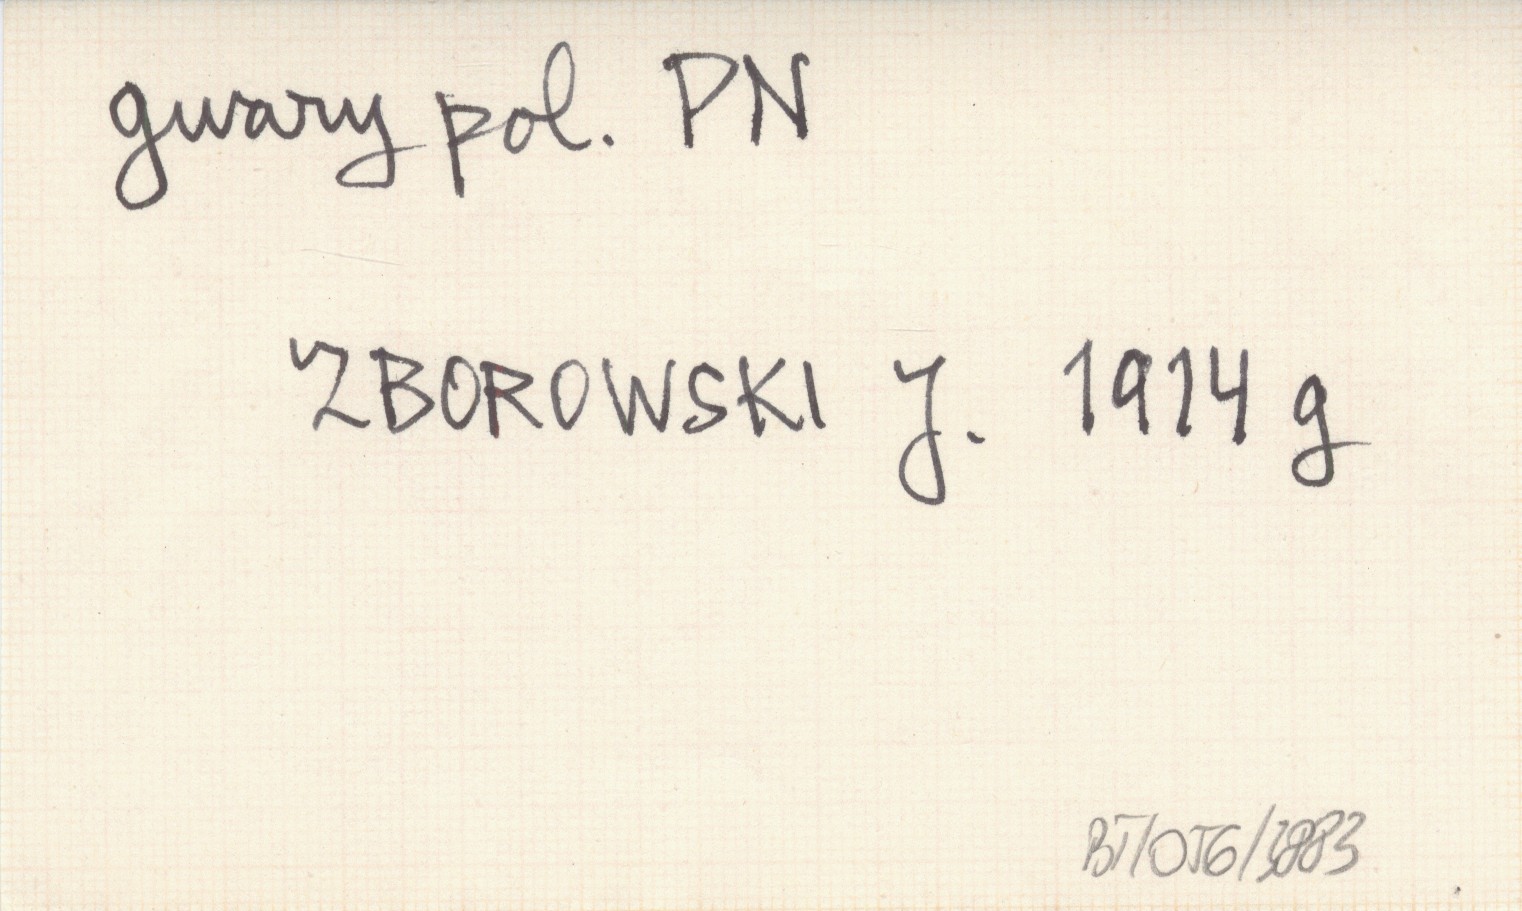 gwary pol. PN
ZBOROWSKI J. 1914 g
BT/OJG/3883